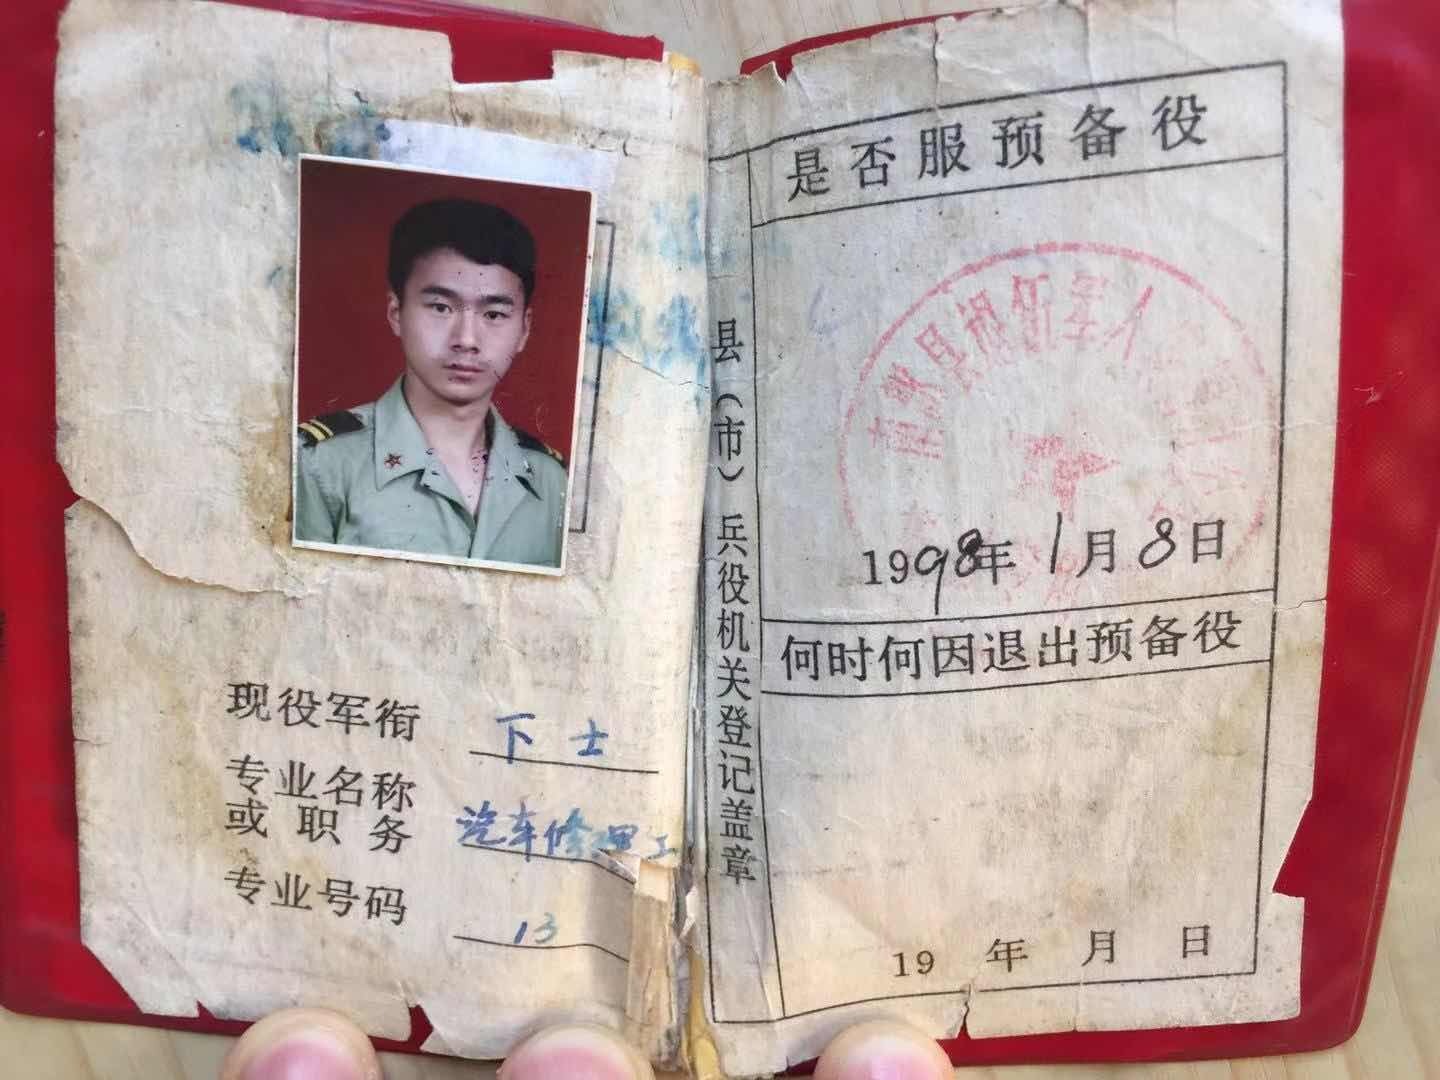 现役军衔 下士
专业名称
或职务 汽车修理工
专业号码 13
县（市）兵役机关登记盖章
是否服预备役
1998年1月8日
何时何因退出预备役
19 年 月 日